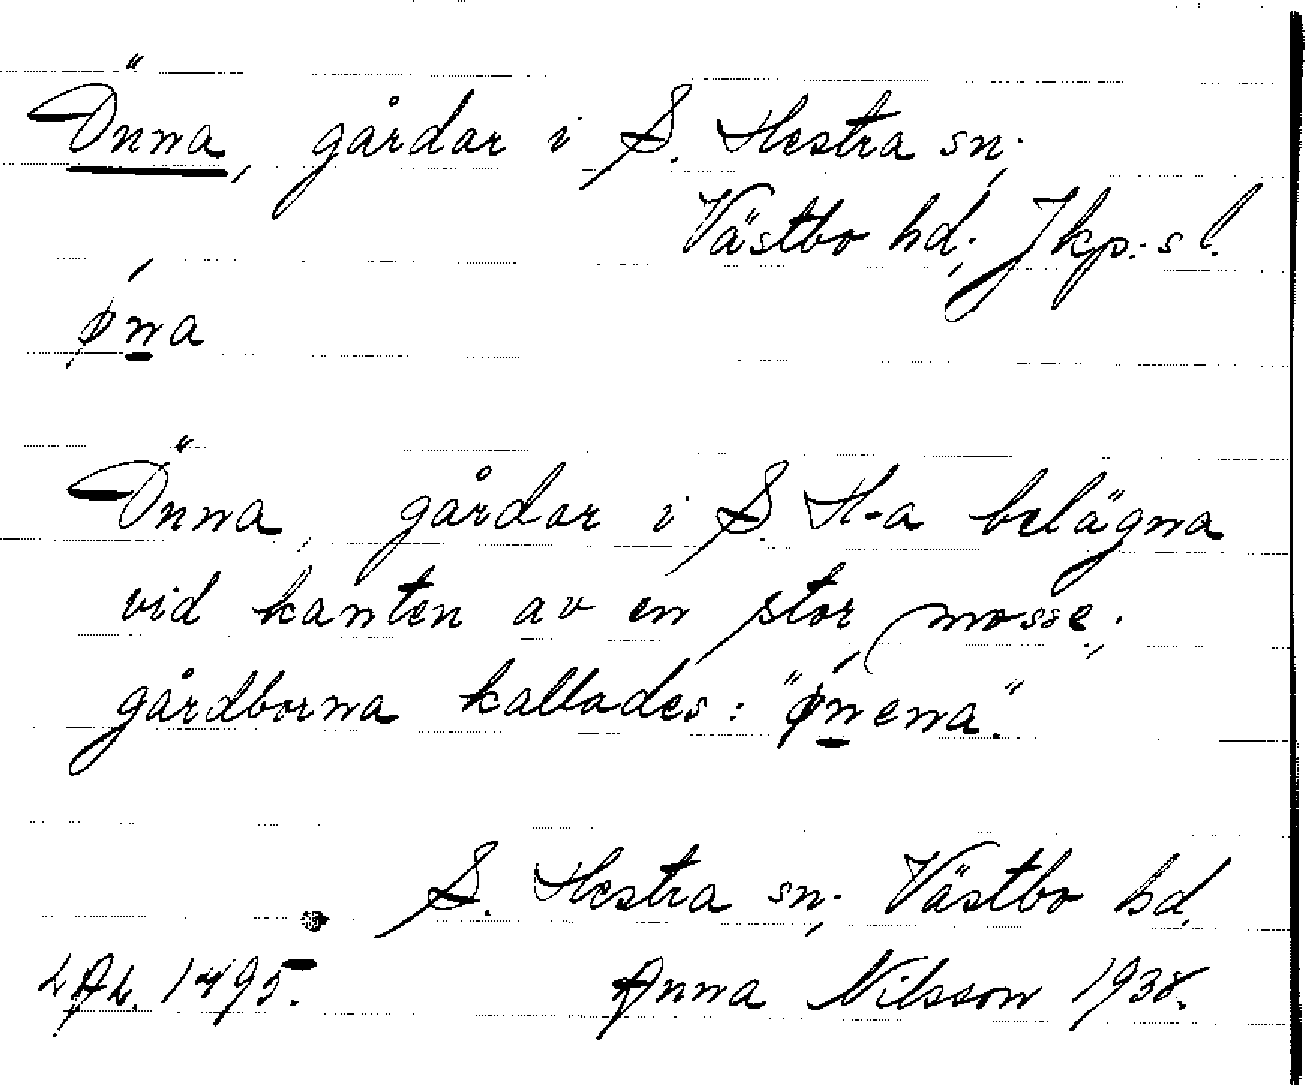 Önna, gårdar i S. Hestra sn.,
Västbo hd., Jkp:s l.
ǿn̲a
Önna, gårdar i S. H-a belägna
vid kanten av en stor mosse.,
gårdborna kallades: "ǿn̲ena."
S. Hestra sn., Västbo hd.
LAL. 1495. Anna Nilsson 1938.